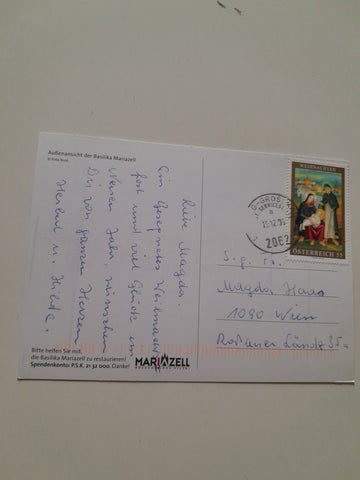 Außenansicht der Basilika Mariazell
Liebe Magda.
Ein gesegnetes Weihnachts-
fest und viel Glück im
Neuen Jahr wünschen
Dir von ganzen Herzen
Herbert u. Hilde.
Bitte helfen Sie mit,
die Basilika Mariazell zu restaurieren!
Spendenkonto: P.S.K. 21 32 000. Danke!
MARIAZELL
WEIHNACHTEN
ÖSTERREICH 55
2062
S.g. Fr.
Magda Haas
1090 Wien
Rossauer Lände 35a